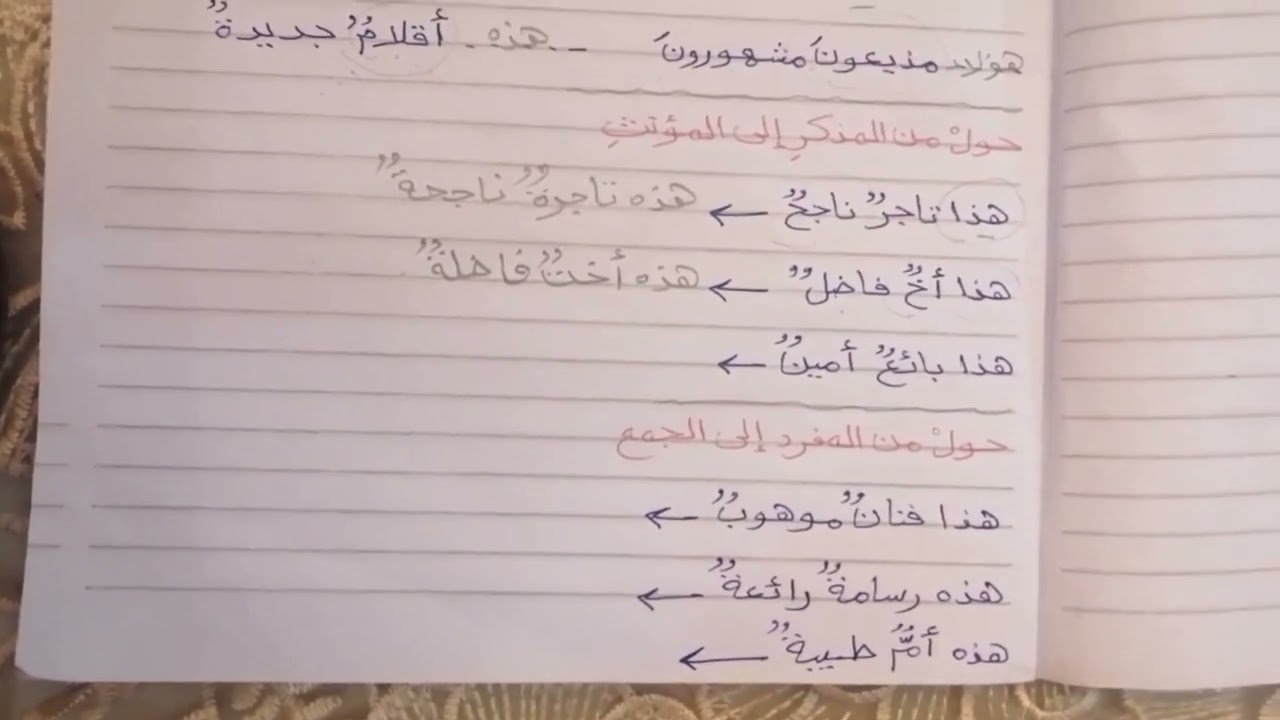 هؤلاء مذيعونَ مشهورونَ - هذه أقلامٌ جديدةٌ
حولْ من المذكرِ إلى المؤنثِ
هذا تاجرٌ ناجحٌ ← هذه تاجرةٌ ناجحةٌ
هذا أخٌ فاضلٌ ← هذه أختٌ فاضلةٌ
هذا بائعٌ أمينٌ ←
حولْ من المفرد إلى الجمع
هذا فنانٌ موهوبٌ ←
هذه رسامةٌ رائعةٌ ←
هذه أمٌّ طيبةٌ ←